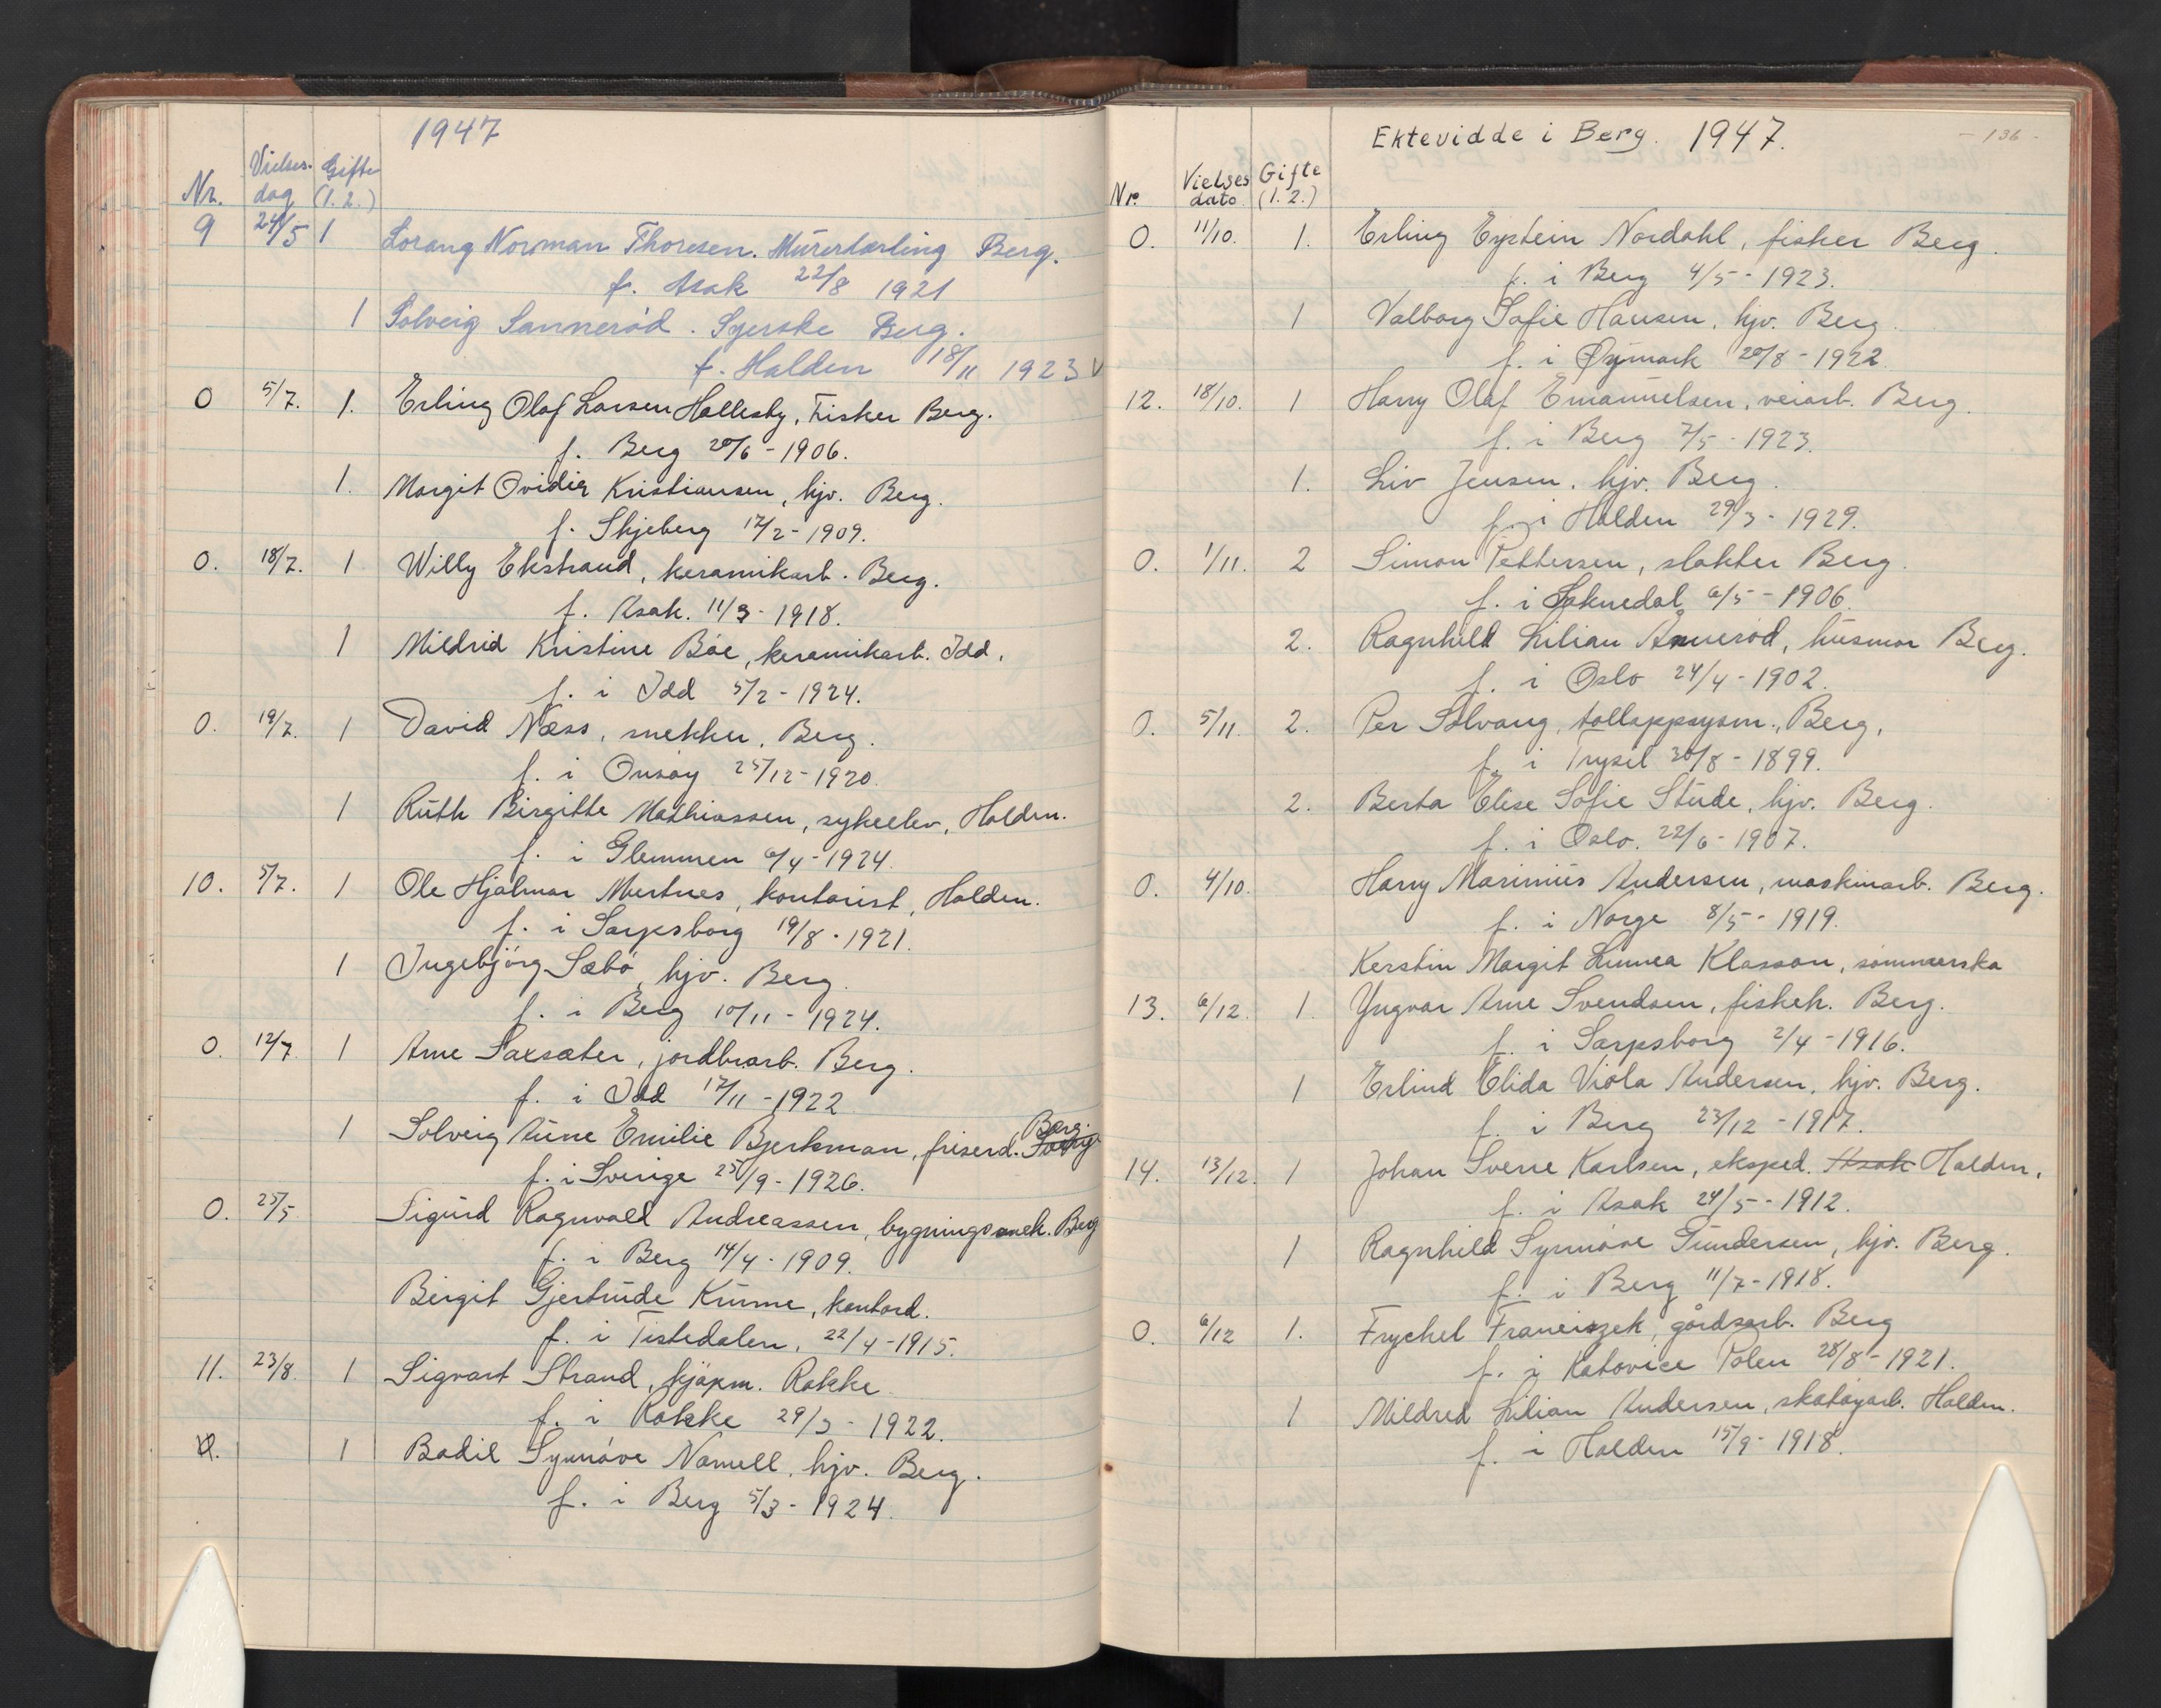 1947
Nr. Vielses- dag Gifte (1. 2.)
9 24/5 1 Lorang Norman Thoresen. Murerlærling Berg.
f. Asak 22/8 1921
1 Solveig Sannerød. Syerske Berg.
f. Halden 18/11 1923 V
0 5/7. 1. Erling Olaf Larsen Hollesby, Fisker Berg.
f. Berg 20/6 - 1906.
1. Margit Ovidia Kristiansen, hjv. Berg.
f. Skjeberg 17/2 - 1909.
0. 18/7. 1 Willy Ekstrand, keramikarb. Berg.
f. Asak. 11/3 - 1918.
1 Mildrid Kristine Bøe, keramikarb. Idd.
f. i Idd 5/2 - 1924.
0. 19/7. 1 David Næss, snekker, Berg.
f. i Onsøy 25/12 - 1920.
1 Ruth Birgitte Mathiassen, sykeelev, Halden.
f. i Glemmen 6/4 - 1924.
10. 5/7. 1 Ole Hjalmar Mertnes, kontorist, Halden.
f. i Sarpsborg 19/8 - 1921.
1 Ingebjörg Sæbö, hjv. Berg.
f. i Berg 10/11 - 1924.
0. 12/7 1 Arne Saxsæter, jordbrarb. Berg.
f. i Idd 17/11 - 1922
1 Solveig Anne Emilie Bjerkman, friserd. Berg.
f. i Sverige 25/9 - 1926.
0. 25/5 Sigurd Ragnvald Andreassen, bygningssnek. Berg
f. i Berg 14/4 - 1909.
Birgit Gjertrude Krumme, kontord.
f. i Tistedalen, 22/4 - 1915.
11. 23/8. 1 Sigvart Strand, kjøpm. Rokke
f. i Rokke 29/3 - 1922.
0. 1 Bodil Synnøve Nomell, hjv. Berg.
f. i Berg 5/3 - 1924.
Ektevidde i Berg. 1947. - 136 -
Nr. Vielses dato Gifte (1. 2.)
0. 11/10. 1. Erling Eystein Nordahl, fisker Berg.
f. i Berg 4/5 - 1923.
1 Valborg Sofie Hansen, hjv. Berg.
f. i Øymark 20/8 - 1922
12. 18/10. 1 Harry Olaf Emanuelsen, veiarb. Berg.
f. i Berg 7/5 - 1923.
1. Liv Jensen, hjv. Berg.
f. i Halden 29/3 - 1929.
0. 1/11. 2 Simon Pettersen, slakter Berg.
f. i Soknedal 6/5 - 1906.
2. Ragnhild Lilian Ånnerød, husmor Berg.
f. i Oslo 24/4 - 1902.
0. 5/11. 2. Per Solvang, tolloppsysm., Berg.
f. i Trysil 30/8 - 1899.
2. Berta Elise Sofie Stude, hjv. Berg.
f. i Oslo. 22/6 - 1907.
0. 4/10. Harry Marinius Andersen, maskinarb. Berg.
f. i Norge 8/5 - 1919.
Kerstin Margit Linnea Klasson, sömmerska
13. 6/12. 1. Yngvar Arne Svendsen, fiskeh. Berg.
f. i Sarpsborg 2/4 - 1916.
1 Erlind Elida Viola Andersen, hjv. Berg.
f. i Berg 23/12 - 1917.
14. 13/12. 1 Johan Sverre Karlsen, eksped. Asak Halden.
f. i Asak 24/5 - 1912.
1 Ragnhild Synnøve Gundersen, hjv. Berg.
f. i Berg 11/7 - 1918.
0. 6/12 1. Frychel Franciszek, gårdsarb. Berg
f. i Katovice Polen 28/8 - 1921.
1 Mildred Lilian Andersen, skotøyarb. Halden.
f. i Halden 15/9 - 1918.